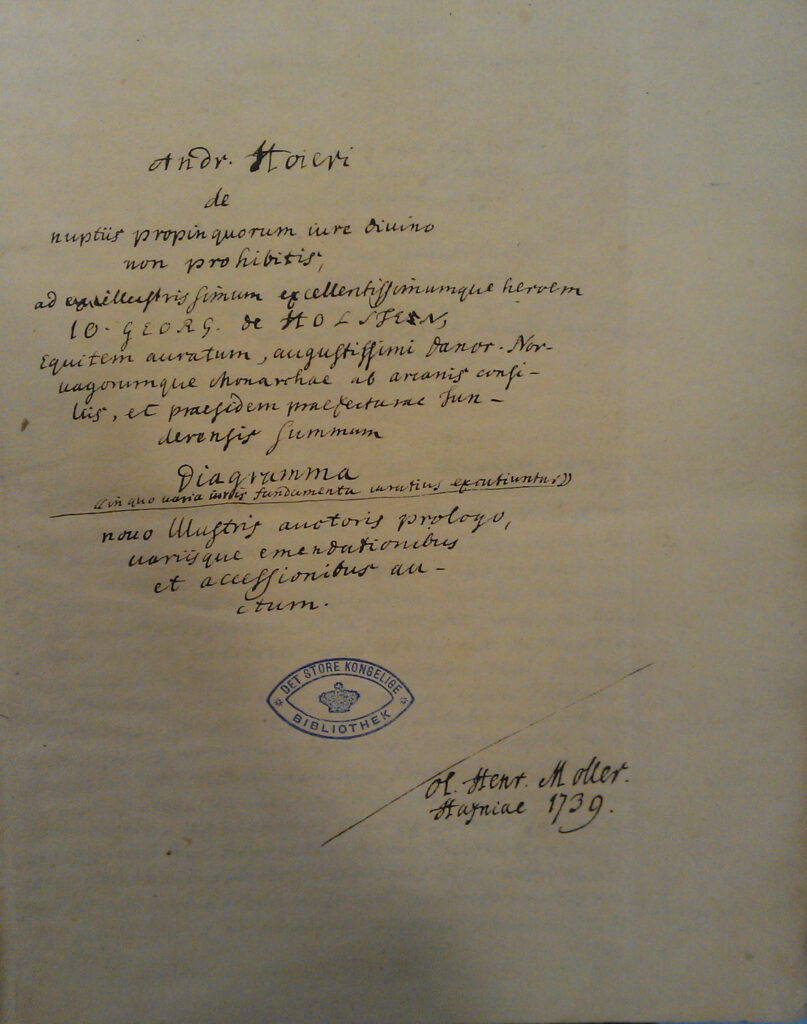 Andr. Hoieri
de
nuptiis propinquorum iure divino
non prohibitis,
ad illustrissimum excellentissimumque heroem
IO. GEORG. de HOLSTEN,
Equitem auratum, augustissimi Danor. Nor-
vagorumque Monarchae ab arcanis consi-
liis, et praesidem praefecturae Tun-
derensis summum
Diagramma
((in quo varia iuris fundamenta curatius excutiuntur))
novo Illustris auctoris prologo,
variisque emendationibus
et accessionibus au-
ctum.
DET STORE KONGELIGE
BIBLIOTHEK
Ol. Henr. Moller.
Hafniae 1739.